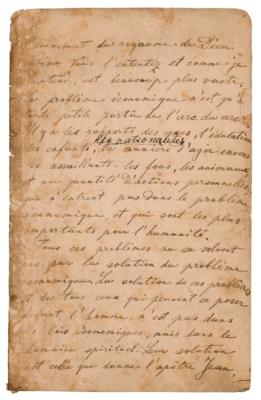 l'avancement du royaume de Dieu
comme vous l'entendez et comme je
l'entends, est beaucoup plus vaste.
Le problème économique n'est qu'une
toute petite partie de l'arc du cercle.
Il y a les rapports des gens, l'éducation
des enfants, les nationalités, la manière d'agir envers
les assaillants: les fous, les animaux
et une quantité d'actions personnelles,
qui n'entrent pas dans le problème
économique, et qui sont les plus
importants pour l'humanité.
Tous ces problèmes ne se solvent
pas par la solution du problème
économique. La solution de ces problèmes
et des tous ceux qui peuvent se poser
devant l'homme, n'est pas dans
les lois économiques, mais dans le
domaine spirituel. Leur solution
est celle que donne l'apôtre Jean,